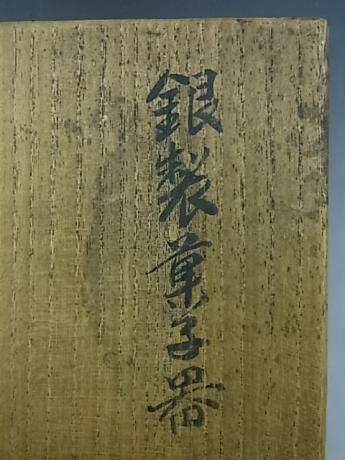 銀製菓子器